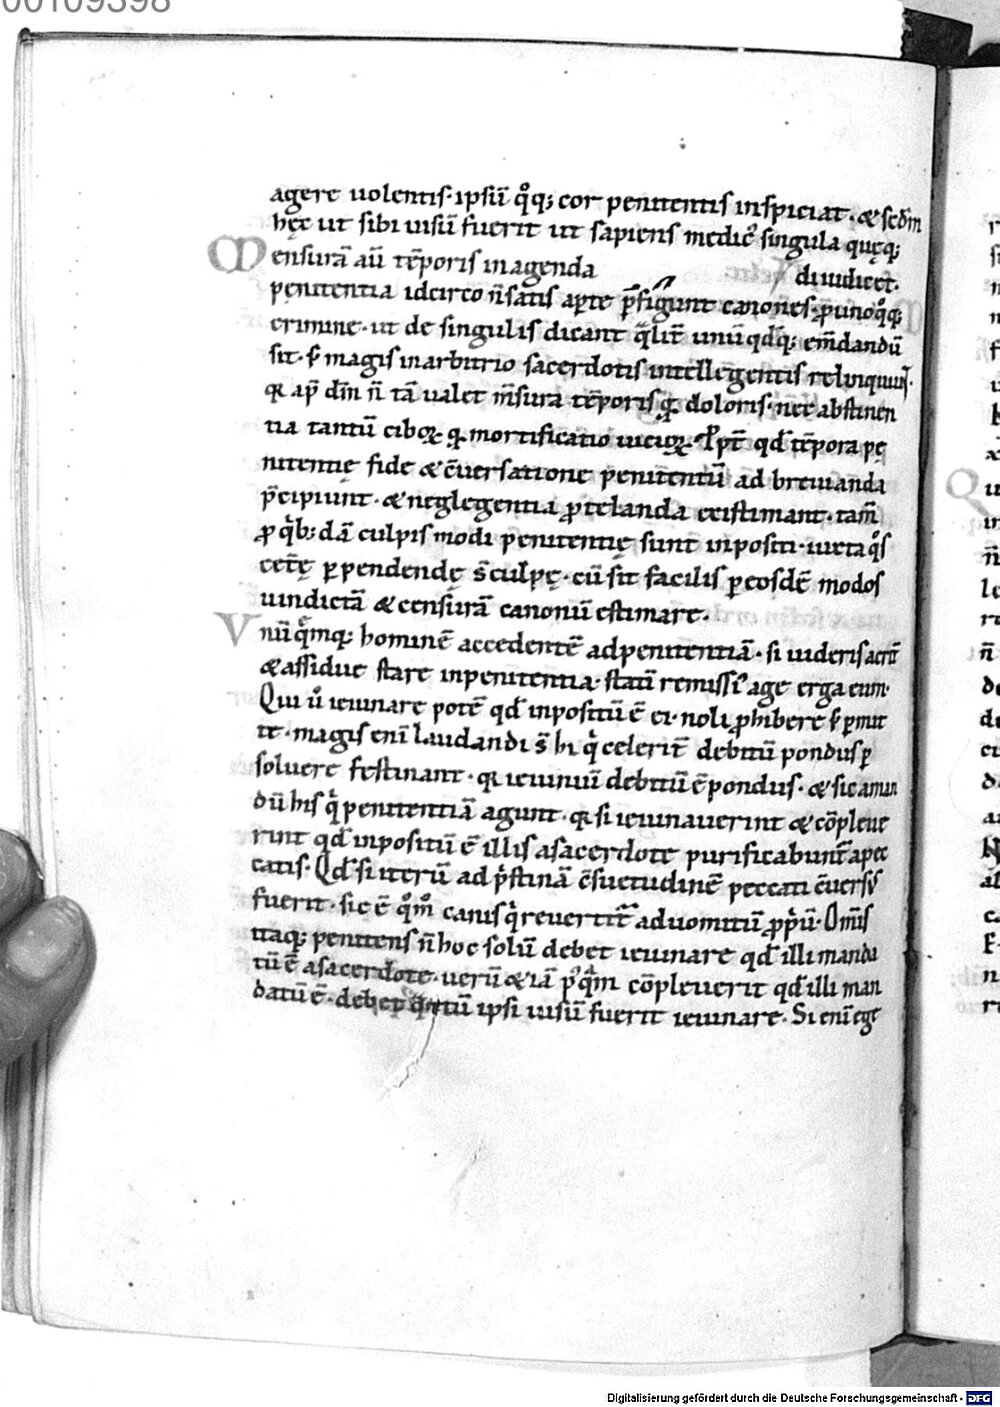 00109398
agere uolentis· ipsiu̅ q͛oq; cor penitentis inspiciat· & scd̅m
hęc ut sibi uisu̅ fuerit ut sapiens medic᷒ singula quęq;
Mensura̅ au̅ te̅poris in agenda diiudicet·
penitentia idcirco n̅ satis ap̲te p̅figunt canones p̲ unoq͛oq;
crimine· ut de singulis dicant q̅lit̅ unu̅ qd̅q; em̅dandu̅
sit· s; magis in arbitrio sacerdotis intellegentis relinquun̅t·
q̲ ap̅ dm̅ n̅ ta̅ ualet m̅sura te̅poris q̲ doloris· nec abstinen
tia tantu̅ ciboꝝ q̲ mortificatio uicioꝝ· Ppt̅ qd̅ te̅pora pę
nitentię fide & c̅uersatione penitentu̅ ad breuianda
p̅cipiunt· & neglegentia ꝓtelanda existimant· tam̅
ꝓ q̇b; da̅ culpis modi penitentię sunt inpositi· iuxta q͛s
cet̅ę p̲pendendę s̅ culpę· cu̅ sit facilis p̲ eosde̅ modos
uindicta̅ & censura̅ canonu̅ estimare·
Vnu̅ q̅mq; homine̅ accedente̅ ad penitentia̅· si uideris acrit̅
& assidue stare in penitentia· stati̅ remissi᷒ age erga eum·
Qui u͛ ieiunare pote̅ qd̅ inpositu̅ e̅ ei· noli ꝓhibere s; p̲mit
te· magis eni̅ laudandi s̅ hi q̇ celerit̅ debitu̅ pondus p̲
soluere festinant· q̲ ieiuniu̅ debitu̅ e̅ pondus· & sic a man
du̅ his q̇ penitentia̅ agunt· q̲ si ieiunauerint & co̅pleue
rint qd̅ inpositu̅ e̅ illis a sacerdote purificabunt̅ a pec
catis· Qd̅ si iteru̅ ad ṗstina̅ c̅suetudine̅ peccati c̅uersus
fuerit· sic e̅ q͛m̅ canis q̇ reuertit̅ ad uomitu̅ ꝓṗu̅· Omis̅
itaq; penitens n̅ hoc solu̅ debet ieiunare qd̅ illi manda
tu̅ e̅ a sacerdote· ueru̅ & ia̅ p᷒ q̅m co̅pleuerit qd̅ illi man
datu̅ e̅· debet q̅ntu̅ ipsi uisu̅ fuerit ieiunare· Si eni̅ ege
Digitalisierung gefördert durch die Deutsche Forschungsgemeinschaft - DFG